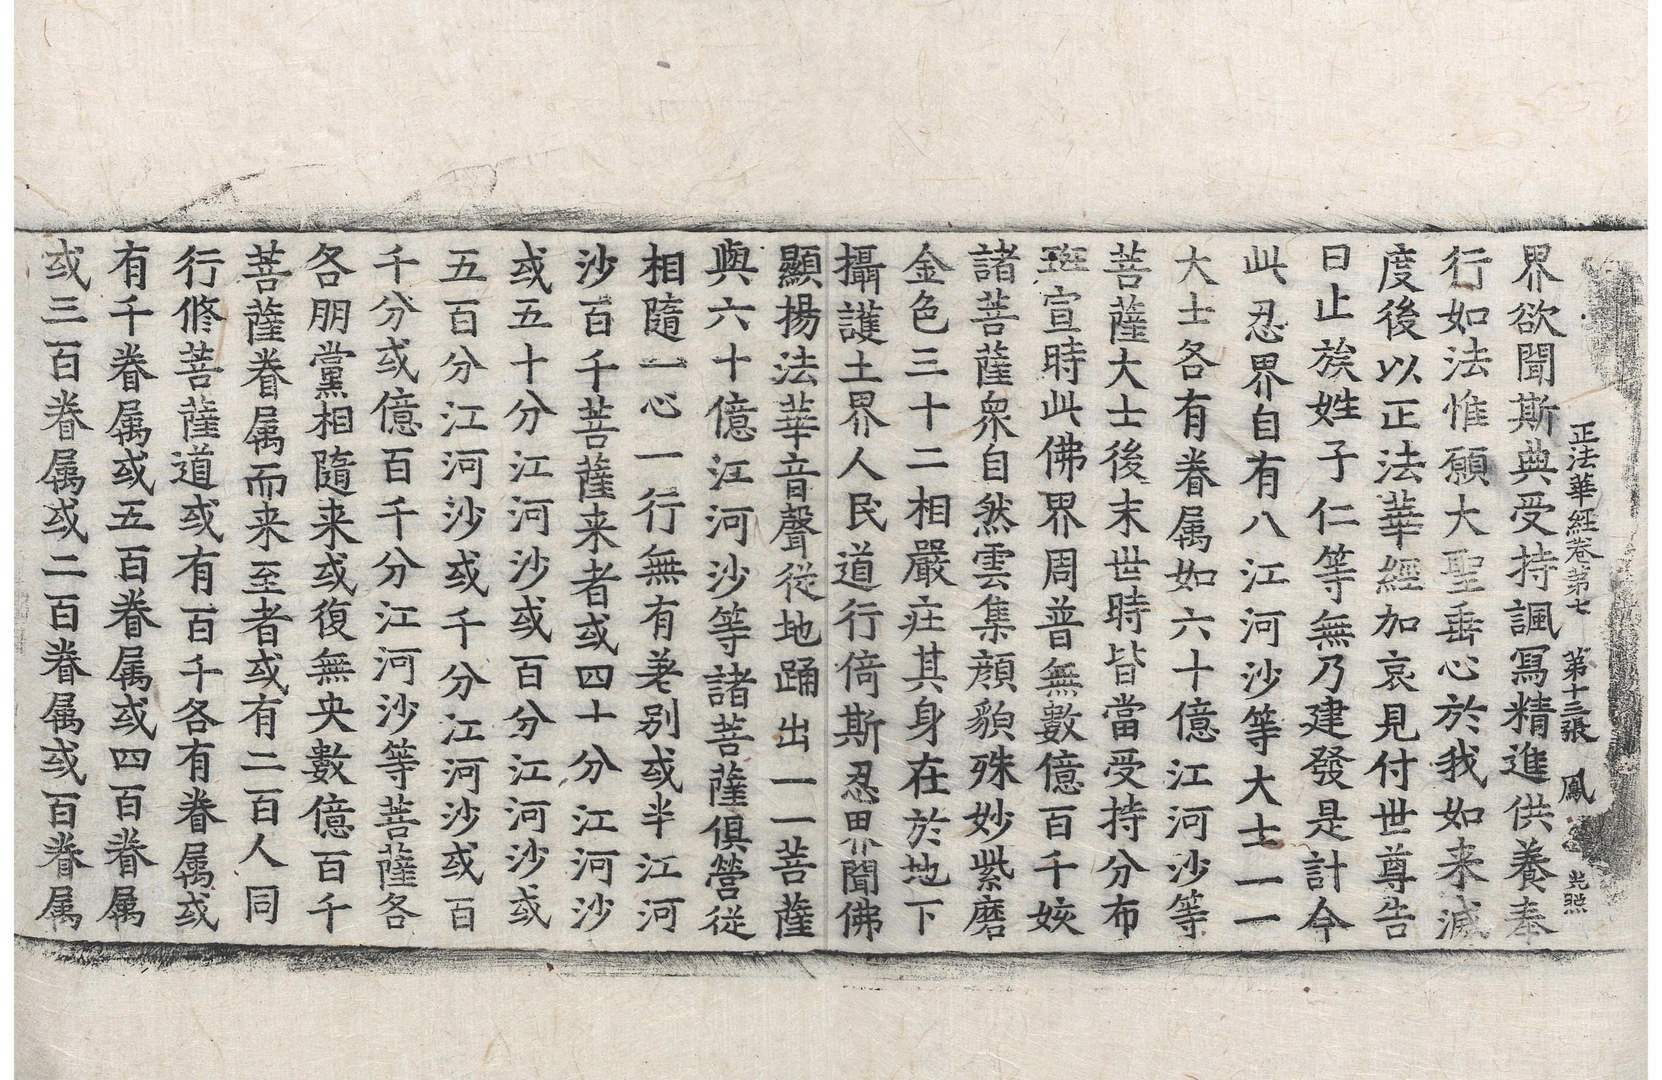 正法華經卷第七 第十三張 鳳 光照
界欲聞斯典受持諷寫精進供養奉
行如法惟願大聖垂心於我如来滅
度後以正法華經加哀見付世尊告
曰止族姓子仁等無乃建發是計今
此忍界自有八江河沙等大士一一
大士各有眷属如六十億江河沙等
菩薩大士後末世時皆當受持分布
班宣時此佛界周普無數億百千姟
諸菩薩衆自然雲集顔貌殊妙紫磨
金色三十二相嚴庄其身在於地下
攝護土界人民道行倚斯忍界聞佛
顯揚法華音聲從地踊出一一菩薩
與六十億江河沙等諸菩薩俱營從
相隨一心一行無有差别或半江河
沙百千菩薩来者或四十分江河沙
或五十分江河沙或百分江河沙或
五百分江河沙或千分江河沙或百
千分或億百千分江河沙等菩薩各
各朋黨相隨来或復無央數億百千
菩薩眷属而来至者或有二百人同
行修菩薩道或有百千各有眷属或
有千眷属或五百眷属或四百眷属
或三百眷属或二百眷属或百眷属